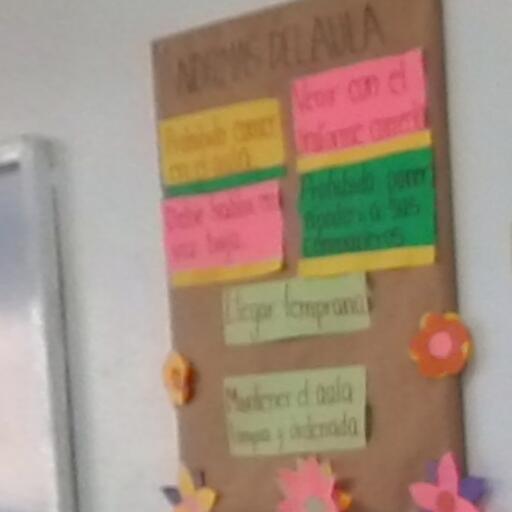 NORMAS DEL AULA
Prohibido comer
en el aula
Venir con el
uniforme correcto
Debe hablar en
voz baja
Prohibido poner
apodos a sus
compañeros
Llegar temprano
Mantener el aula
limpia y ordenada